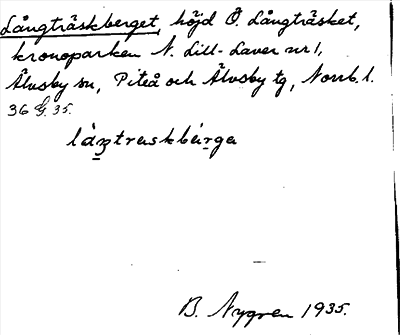 Långträskberget, höjd Ö Långträsket,
kronoparken N. Lill-Laver nr 1,
Älvsby sn, Piteå och Älvsby tg, Norrb. l.
36 G. 35.
låŋtraskbärga
B. Nygren 1935.